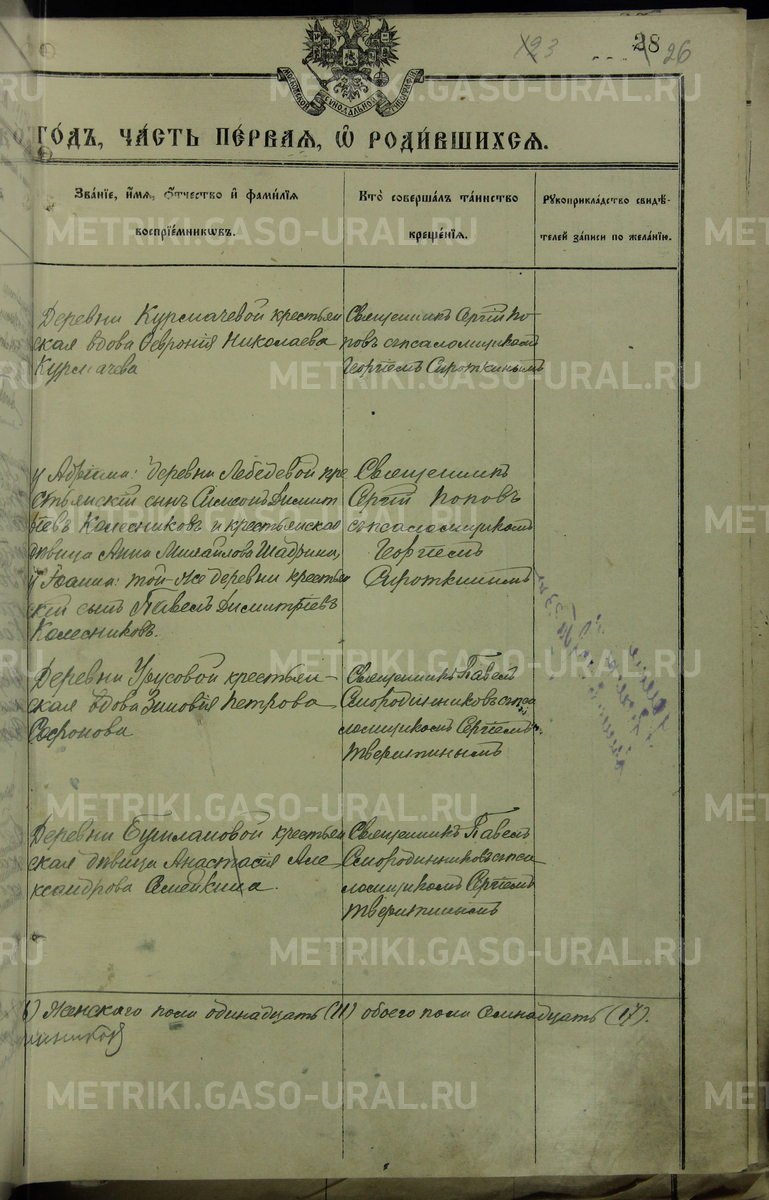 123 28 26
МОСКОВСКОЙ СУНОДАЛЬНОЙ ТИПОГРАФІИ
ГОДЪ, ЧАСТЬ ПЕРВАЯ, Ѡ РОДИВШИХСЯ.
Званіе, имя, отчество и фамилія
воспріемниковъ.
Кто совершалъ таинство
крещенія.
Рукоприкладство свидѣ-
телей записи по желанію.
Деревни Курмачевой крестьян
ская вдова Ѳевронія Николаева
Курмачева
Священникъ Сергій По-
повъ съ псаломщикомъ
Георгіемъ Сироткинымъ
у Адріана: деревни Лебедевой кре
стьянскій сынъ Симеонъ Димит
ріевъ Колесниковъ и крестьянская
дѣвица Анна Михайлова Шадрина,
у Іоанна: той-же деревни крестьян
скій сынъ Павелъ Димитріевъ
Колесниковъ.
Священникъ
Сергій Поповъ
съ псаломщикомъ
Георгіемъ
Сироткинымъ
Деревни Урусовой крестьян-
ская вдова Зиновія Петрова
Сафонова
Священникъ Павелъ
Смородинниковъ съ пса
ломщикомъ Сергіемъ
Тверитинымъ
Деревни Бушлановой крестьян
ская дѣвица Анастасія Але
ксандрова Семейкина.
Священникъ Павелъ
Смородинниковъ съ пса
ломщикомъ Сергіемъ
Тверитинымъ
6) Женскаго пола одинадцать (11) обоего пола семнадцать (17).
METRIKI.GASO-URAL.RU